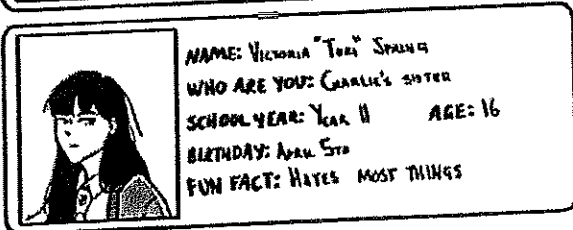 NAME: VICTORIA "TORI" SPRING
WHO ARE YOU: CHARLIE'S SISTER
SCHOOL YEAR: YEAR 11 AGE: 16
BIRTHDAY: APRIL 5TH
FUN FACT: HATES MOST THINGS